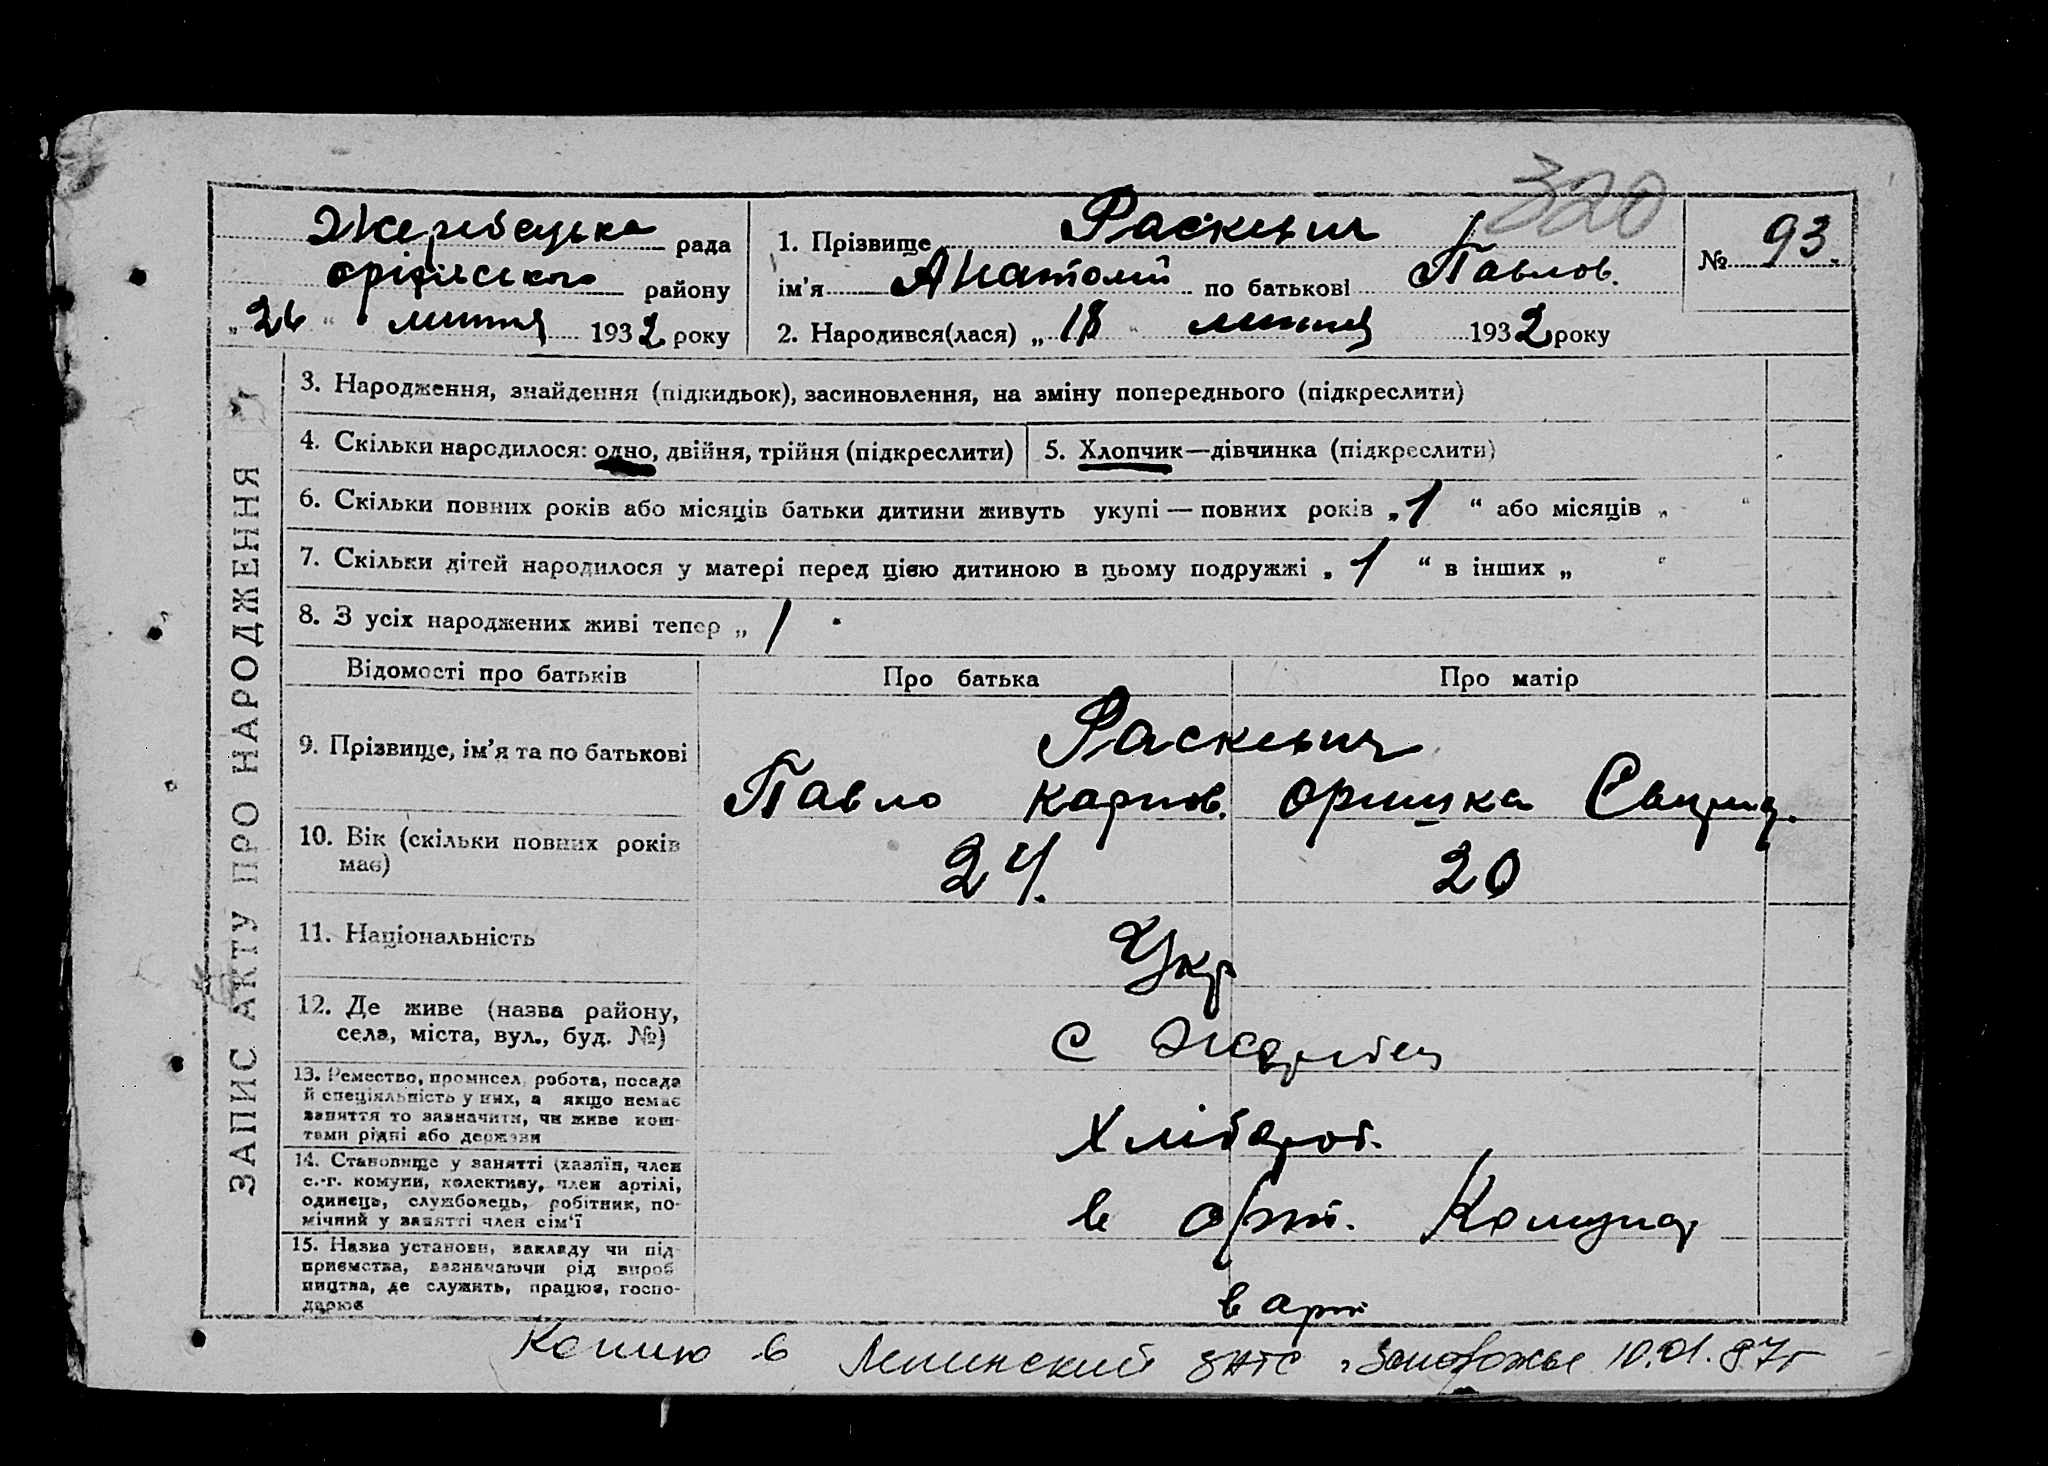 320
Жеребецька рада
оріхівського району
„26“ лютня 1932 року
1. Прізвище Раскевич
ім'я Анатолій по батькові Павлов.
2. Народився(лася) „18“ лютня 1932 року
№ 93.
ЗАПИС АКТУ ПРО НАРОДЖЕННЯ
3. Народження, знайдення (підкидьок), засиновлення, на зміну попереднього (підкреслити)
4. Скільки народилося: одно, двійня, трійня (підкреслити)
5. Хлопчик—дівчинка (підкреслити)
6. Скільки повних років або місяців батьки дитини живуть укупі — повних років „1“ або місяців „ “
7. Скільки дітей народилося у матері перед цією дитиною в цьому подружжі „1“ в інших „ “
8. З усіх народжених живі тепер „1“
Відомості про батьків Про батька Про матір
9. Прізвище, ім'я та по батькові
Раскевич
Павло Карпов. Оришка
10. Вік (скільки повних років
має)
24. 20
11. Національність
Укр
12. Де живе (назва району,
села, міста, вул., буд. №)
с Жеребец
13. Ремество, промисел, робота, посада
й спеціяльність у них, а якщо немає
заняття то зазначити, чи живе кош-
тами рідні або держави
Хлібороб.
14. Становище у занятті (хазяїн, член
с.-г. комуни, колективу, член артілі,
одинець, службовець, робітник, по-
мічний у занятті член сім'ї
в орт. Комунар
15. Назва установи, закладу чи під-
приємства, зазначаючи рід вироб-
ництва, де служить, працює, госпо-
дарює
в арт
Копию в Ленинский ЗАГС г Запорожье 10.01.87г